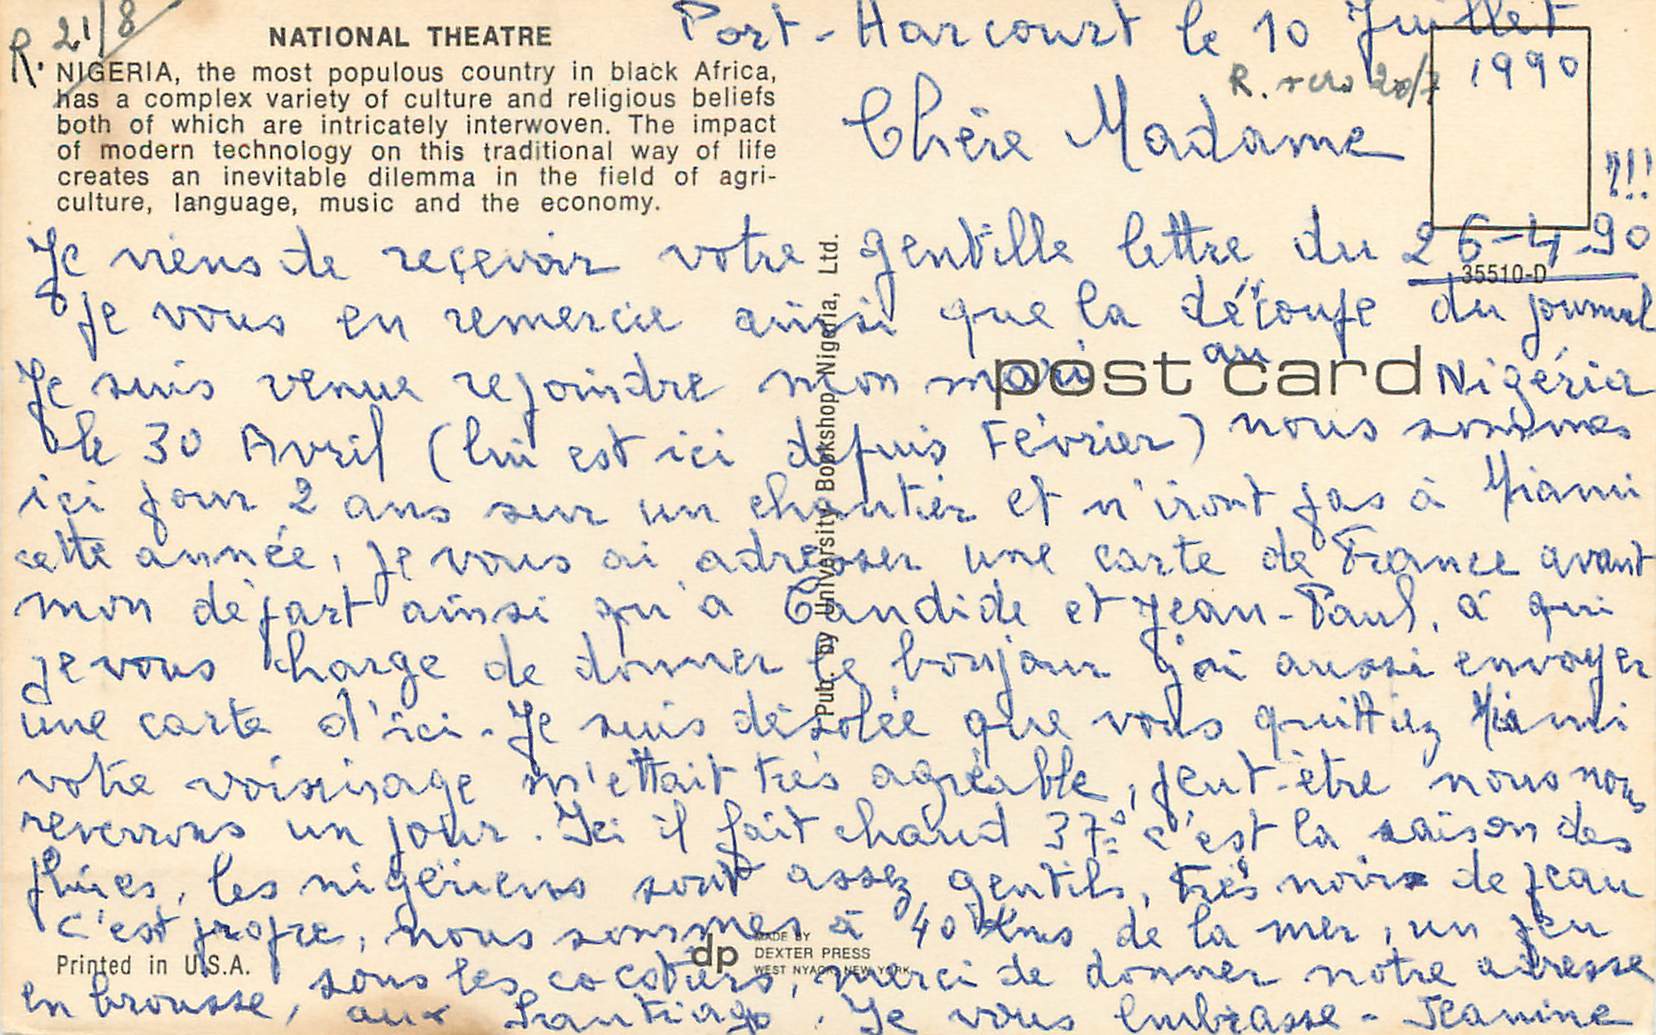 R. 21/8
NATIONAL THEATRE
NIGERIA, the most populous country in black Africa,
has a complex variety of culture and religious beliefs
both of which are intricately interwoven. The impact
of modern technology on this traditional way of life
creates an inevitable dilemma in the field of agri-
culture, language, music and the economy.
Port-Harcourt le 10 Juillet
1990
R. 20/7
Chère Madame
!!!
Je viens de reçevoir votre gentille lettre du 26-4-90
35510-D
je vous en remercie ainsi que la découpe du journal
post card
Je suis venue rejoindre mon mari au Nigéria
le 30 Avril (lui est ici depuis Février) nous sommes
ici pour 2 ans sur un chantier et n'iront pas à Miami
cette année, je vous ai adresser une carte de France avant
mon départ ainsi qu'a Candide et Jean-Paul, à qui
je vous charge de donner le bonjour j'ai aussi envoyer
une carte d'ici. Je suis désolée que vous quittiez Miami
votre voisinage m'ettait très agréable, peut-être nous nous
reverrons un jour. Ici il fait chaud 37° c'est la saison des
pluies, les nigériens sont assez gentils, très noirs de peau
c'est propre, nous sommes à 40 Kms de la mer, un peu
en brousse, sous les cocotiers, merci de donner notre adresse
aux Santiago. Je vous embrasse - Jeanine
Pub. by University Bookshop Nigeria, Ltd.
Printed in U.S.A.
dp
MADE BY
DEXTER PRESS
WEST NYACK, NEW YORK